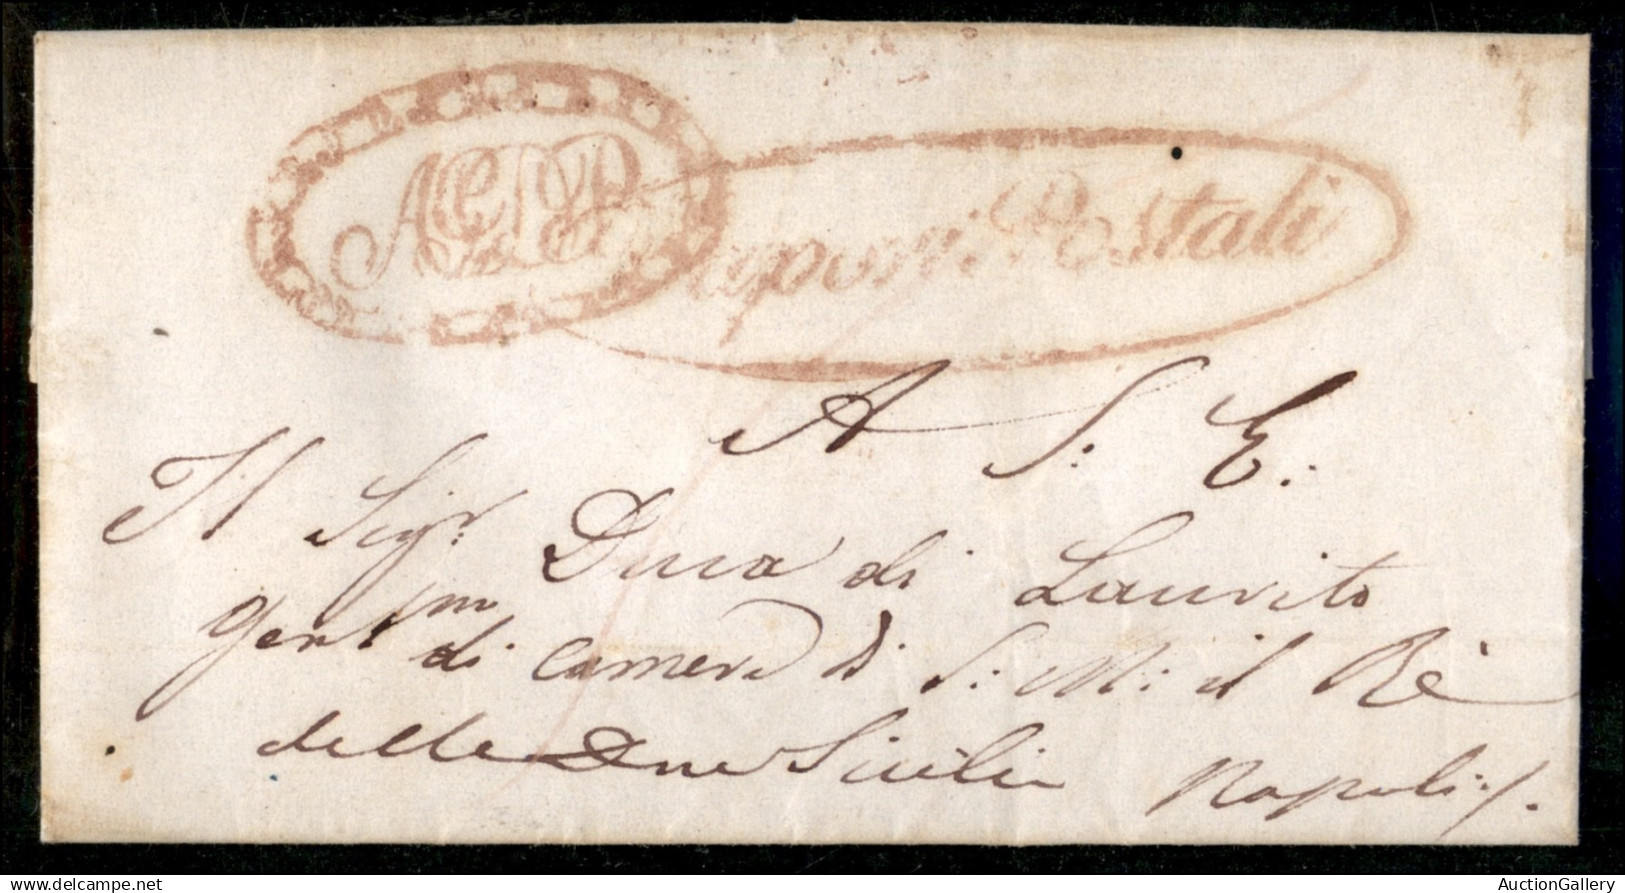 AGDP
Vapori Postali
A S. E.
Il Sigr. Duca di Laurito
Gentm di Camera di S. M. il Rè
delle Due Sicilie Napoli
AuctionGallery